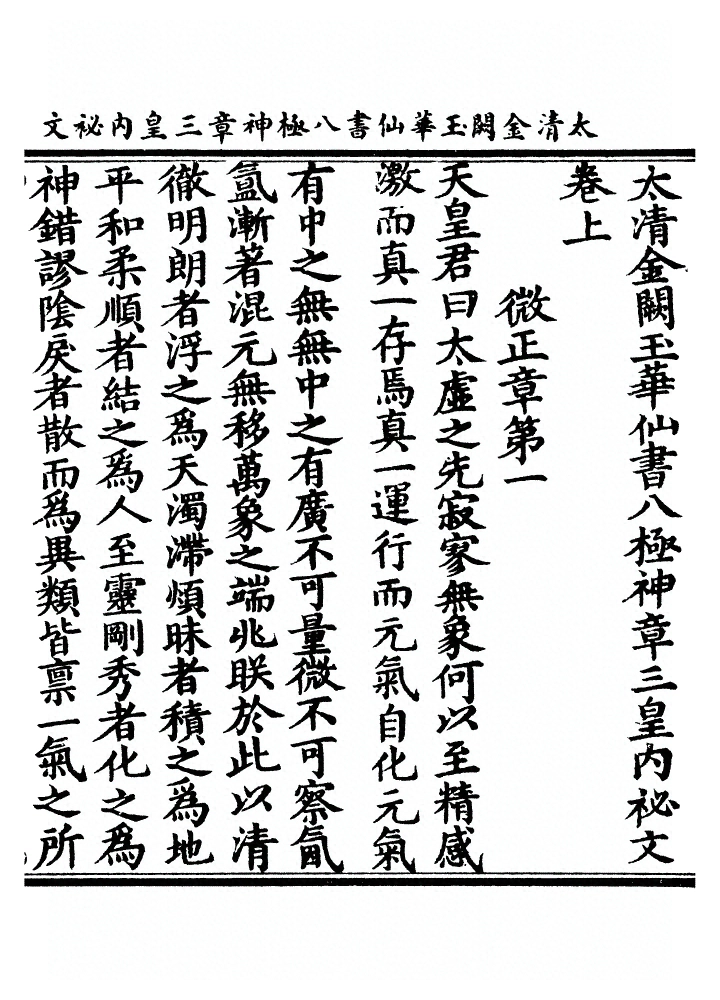 太清金闕玉華仙書八極神章三皇內祕文
太清金闕玉華仙書八極神章三皇內祕文
卷上
微正章第一
天皇君曰太虛之先寂寥無象何以至精感
激而真一存焉真一運行而元氣自化元氣
有中之無無中之有廣不可量微不可察氤
氳漸著混元無移萬象之端兆朕於此以清
徹明朗者浮之為天濁滯煩昧者積之為地
平和柔順者結之為人至靈剛秀者化之為
神錯謬陰戾者散而為異類皆禀一氣之所